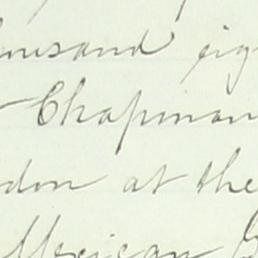 ousand eig
Chapman
don at the
Mexican G